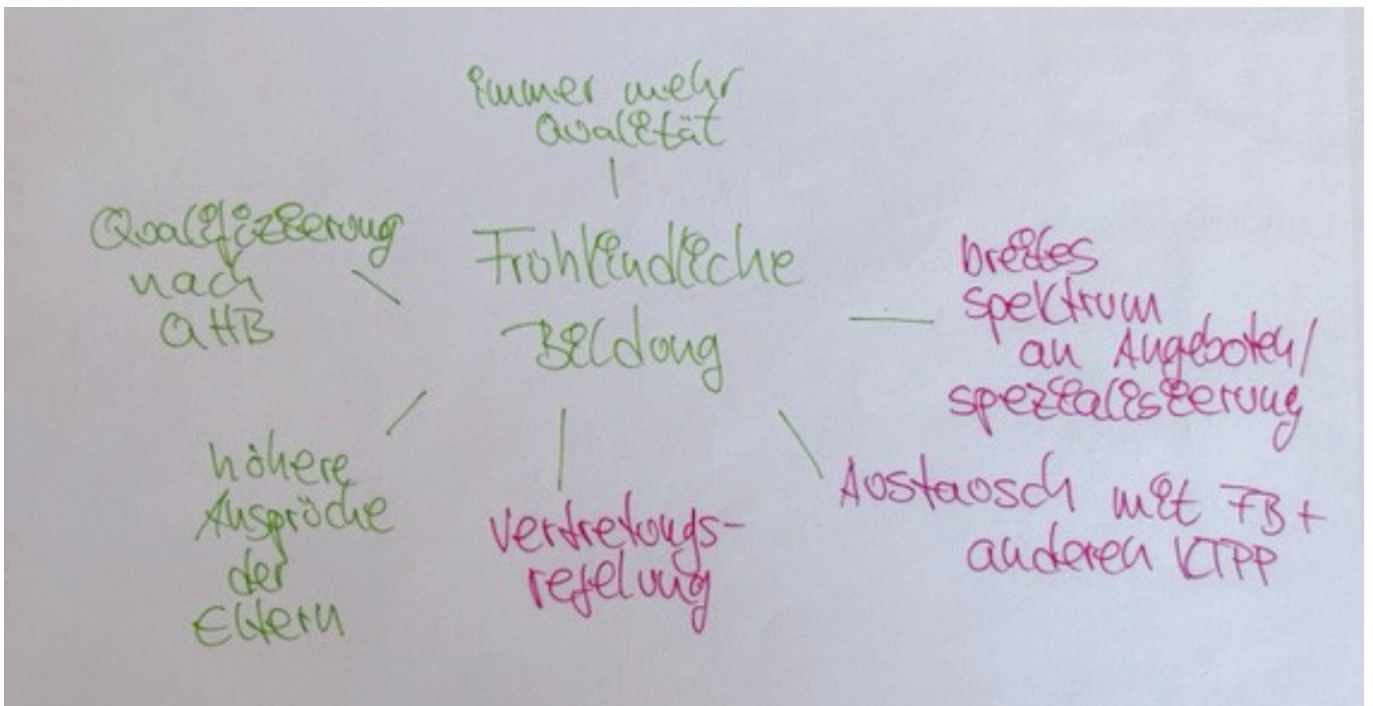 immer mehr
Qualität
Qualifizierung
nach
QHB
Frühkindliche
Bildung
breites
spektrum
an Angeboten/
spezialisierung
höhere
Ansprüche
der
Eltern
Vertretungs-
regelung
Austausch mit FB +
anderen KTPP